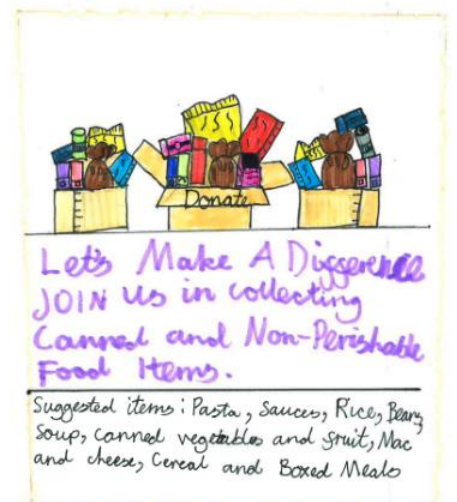 Donate
Let's Make A Difference
JOIN Us in collecting
Canned and Non-Perishable
Food Items.
Suggested items: Pasta, Sauces, Rice, Beans,
Soup, canned vegetables and fruit, Mac
and cheese, Cereal and Boxed Meals